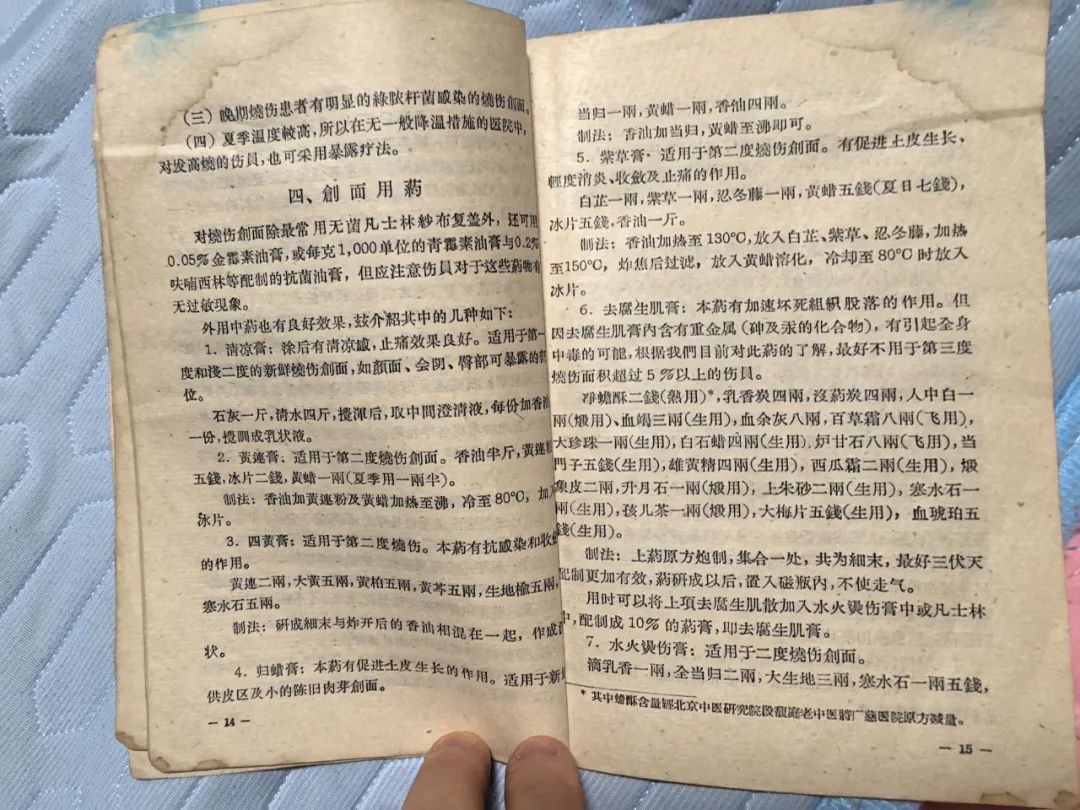 (三) 晚期燒伤患者有明显的綠脓杆菌感染的燒伤創面。
(四) 夏季温度較高,所以在无一般降温措施的医院中,
对发高燒的伤員,也可采用暴露疗法。
四、創面用葯
对燒伤創面除最常用无菌凡士林紗布复盖外,还可用
0.05%金霉素油膏,或每克1,000单位的青霉素油膏与0.2%
呋喃西林等配制的抗菌油膏,但应注意伤員对于这些葯物有
无过敏現象。
外用中葯也有良好效果,玆介紹其中的几种如下:
1. 清凉膏:涂后有清凉感,止痛效果良好。适用于第一
度和淺二度的新鮮燒伤創面,如顏面、会阴、臀部可暴露的
位。
石灰一斤,清水四斤,攪渾后,取中間澄清液,每份加香油
一份,攪調成乳状液。
2. 黃連膏:适用于第二度燒伤創面。香油半斤,黃連粉
五錢,冰片二錢,黃蜡一兩(夏季用一兩半)。
制法:香油加黃連粉及黃蜡加热至沸,冷至80°C,加入
冰片。
3. 四黃膏:适用于第二度燒伤。本葯有抗感染和收
的作用。
黃連二兩,大黃五兩,黃柏五兩,黃芩五兩,生地榆五兩,
寒水石五兩。
制法:研成細末与炸开后的香油相混在一起,作成
状。
4. 归蜡膏:本葯有促进上皮生长的作用。适用于新
供皮区及小的陈旧肉芽創面。
— 14 —
当归一兩,黃蜡一兩,香油四兩。
制法:香油加当归,黃蜡至沸即可。
5. 紫草膏·适用于第二度燒伤創面。有促进上皮生长、
輕度消炎、收斂及止痛的作用。
白芷一兩,紫草一兩,忍冬藤一兩,黃蜡五錢(夏日七錢),
冰片五錢,香油一斤。
制法:香油加热至130°C,放入白芷、紫草、忍冬藤,加热
至150°C,炸焦后过滤,放入黃蜡溶化,冷却至80°C时放入
冰片。
6. 去腐生肌膏:本葯有加速坏死組織脫落的作用。但
因去腐生肌膏內含有重金属(砷及汞的化合物),有引起全身
中毒的可能,根据我們目前对此葯的了解,最好不用于第三度
燒伤面积超过5%以上的伤員。
净蟾酥二錢(熬用)*,乳香炭四兩,沒葯炭四兩,人中白一
兩(煅用)、血竭三兩(生用),血余灰八兩,百草霜八兩(飞用),
大珍珠一兩(生用),白石蜡四兩(生用).炉甘石八兩(飞用),当
門子五錢(生用),雄黃精四兩(生用),西瓜霜二兩(生用),煅
象皮二兩,升月石一兩(煅用),上朱砂二兩(生用),寒水石一
兩(生用),孩儿茶一兩(煅用),大梅片五錢(生用),血琥珀五
錢(生用)。
制法:上葯原方炮制,集合一处,共为細末,最好三伏天
配制更加有效,葯研成以后,置入磁瓶內,不使走气。
用时可以将上項去腐生肌散加入水火燙伤膏中或凡士林
中,配制成10%的葯膏,即去腐生肌膏。
7. 水火燙伤膏:适用于二度燒伤創面。
滴乳香一兩,全当归二兩,大生地三兩,寒水石一兩五錢,
* 其中蟾酥含量經北京中医研究院段馥庭老中医將广慈医院原方减量。
— 15 —